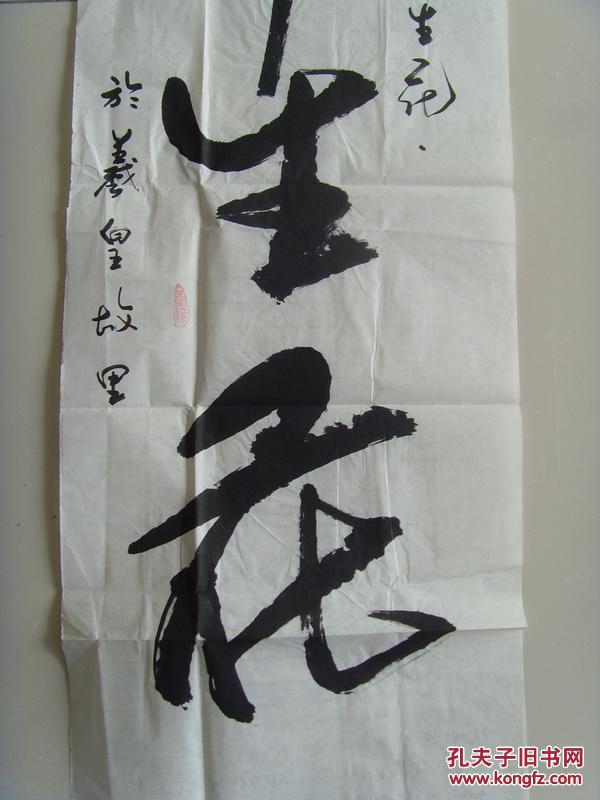 生花
生花
於羲皇故里
孔夫子旧书网
www.kongfz.com